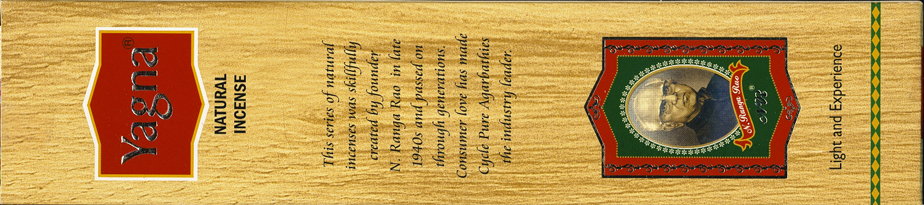 Yagna®
NATURAL
INCENSE
This series of natural
incenses was skillfully
created by founder
N. Ranga Rao in late
1940s and passed on
through generations.
Consumer love has made
Cycle Pure Agarbathies
the industry leader.
N. Ranga Rao
®
Light and Experience